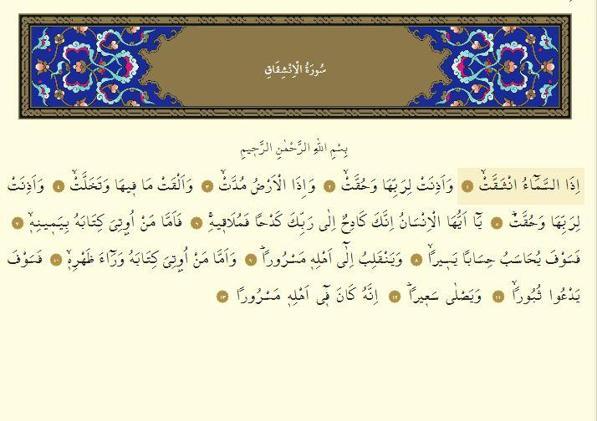 سُورَةُ الْاِنْشِقَاقِ
بِسْمِ اللّٰهِ الرَّحْمٰنِ الرَّح۪يمِ
اِذَا السَّمَٓاءُ انْشَقَّتْۙ ﴿١﴾ وَاَذِنَتْ لِرَبِّهَا وَحُقَّتْۙ ﴿٢﴾ وَاِذَا الْاَرْضُ مُدَّتْۙ ﴿٣﴾ وَاَلْقَتْ مَا ف۪يهَا وَتَخَلَّتْۙ ﴿٤﴾ وَاَذِنَتْ
لِرَبِّهَا وَحُقَّتْۜ ﴿٥﴾ يَٓا اَيُّهَا الْاِنْسَانُ اِنَّكَ كَادِحٌ اِلٰى رَبِّكَ كَدْحًا فَمُلَاق۪يهِۚ ﴿٦﴾ فَاَمَّا مَنْ اُو۫تِيَ كِتَابَهُ بِيَم۪ينِه۪ۙ ﴿٧﴾
فَسَوْفَ يُحَاسَبُ حِسَابًا يَس۪يرًاۙ ﴿٨﴾ وَيَنْقَلِبُ اِلٰٓى اَهْلِه۪ مَسْرُورًاۜ ﴿٩﴾ وَاَمَّا مَنْ اُو۫تِيَ كِتَابَهُ وَرَٓاءَ ظَهْرِه۪ۙ ﴿١٠﴾ فَسَوْفَ
يَدْعُوا ثُبُورًاۙ ﴿١١﴾ وَيَصْلٰى سَع۪يرًاۜ ﴿١٢﴾ اِنَّهُ كَانَ ف۪ٓي اَهْلِه۪ مَسْرُورًاۜ ﴿١٣﴾